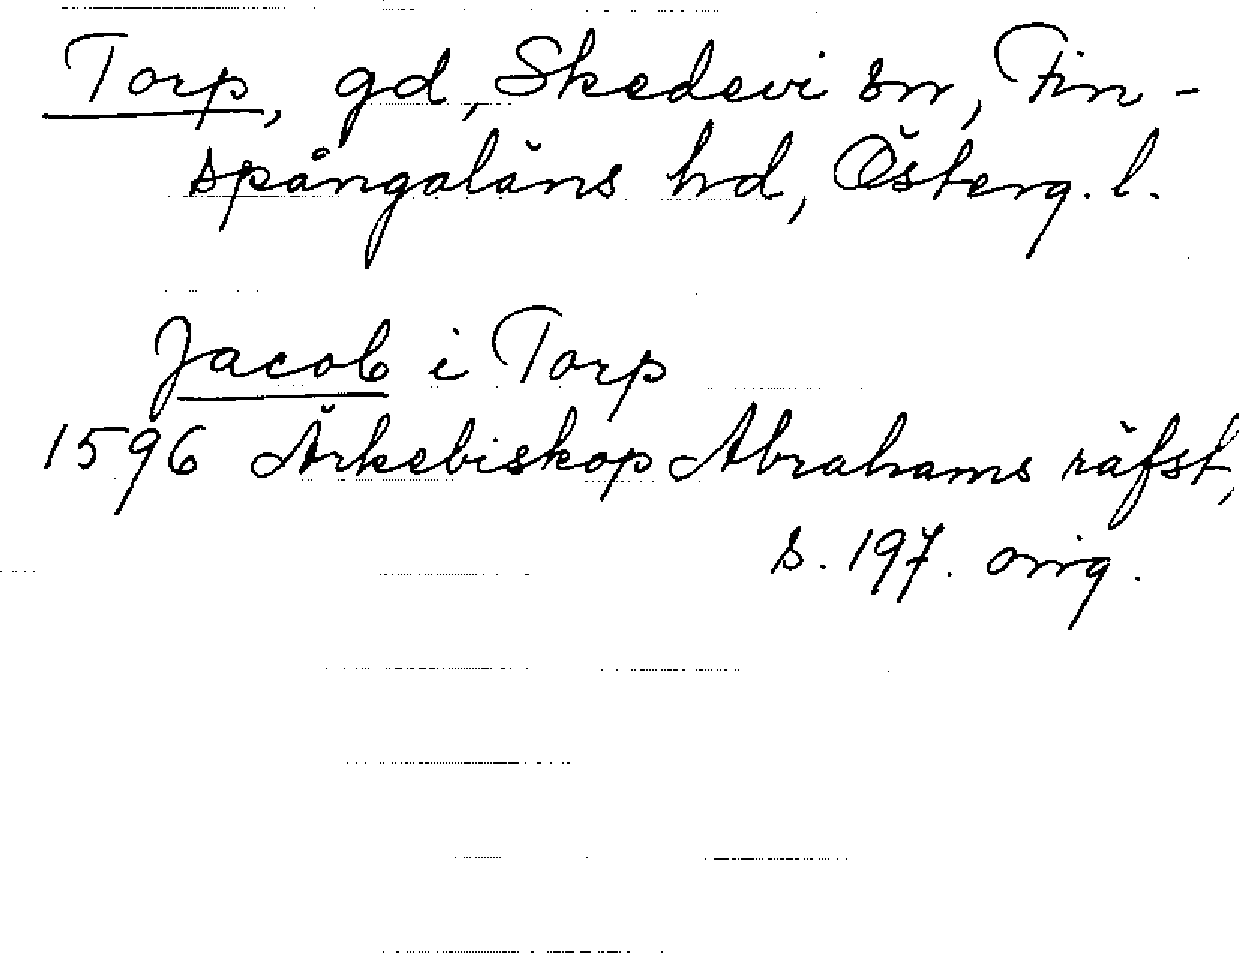 Torp, gd, Skedevi sn, Fin-
spångaläns hd, Österg. l.
Jacob i Torp
1596 Ärkebiskop Abrahams räfst,
s. 197. orig.